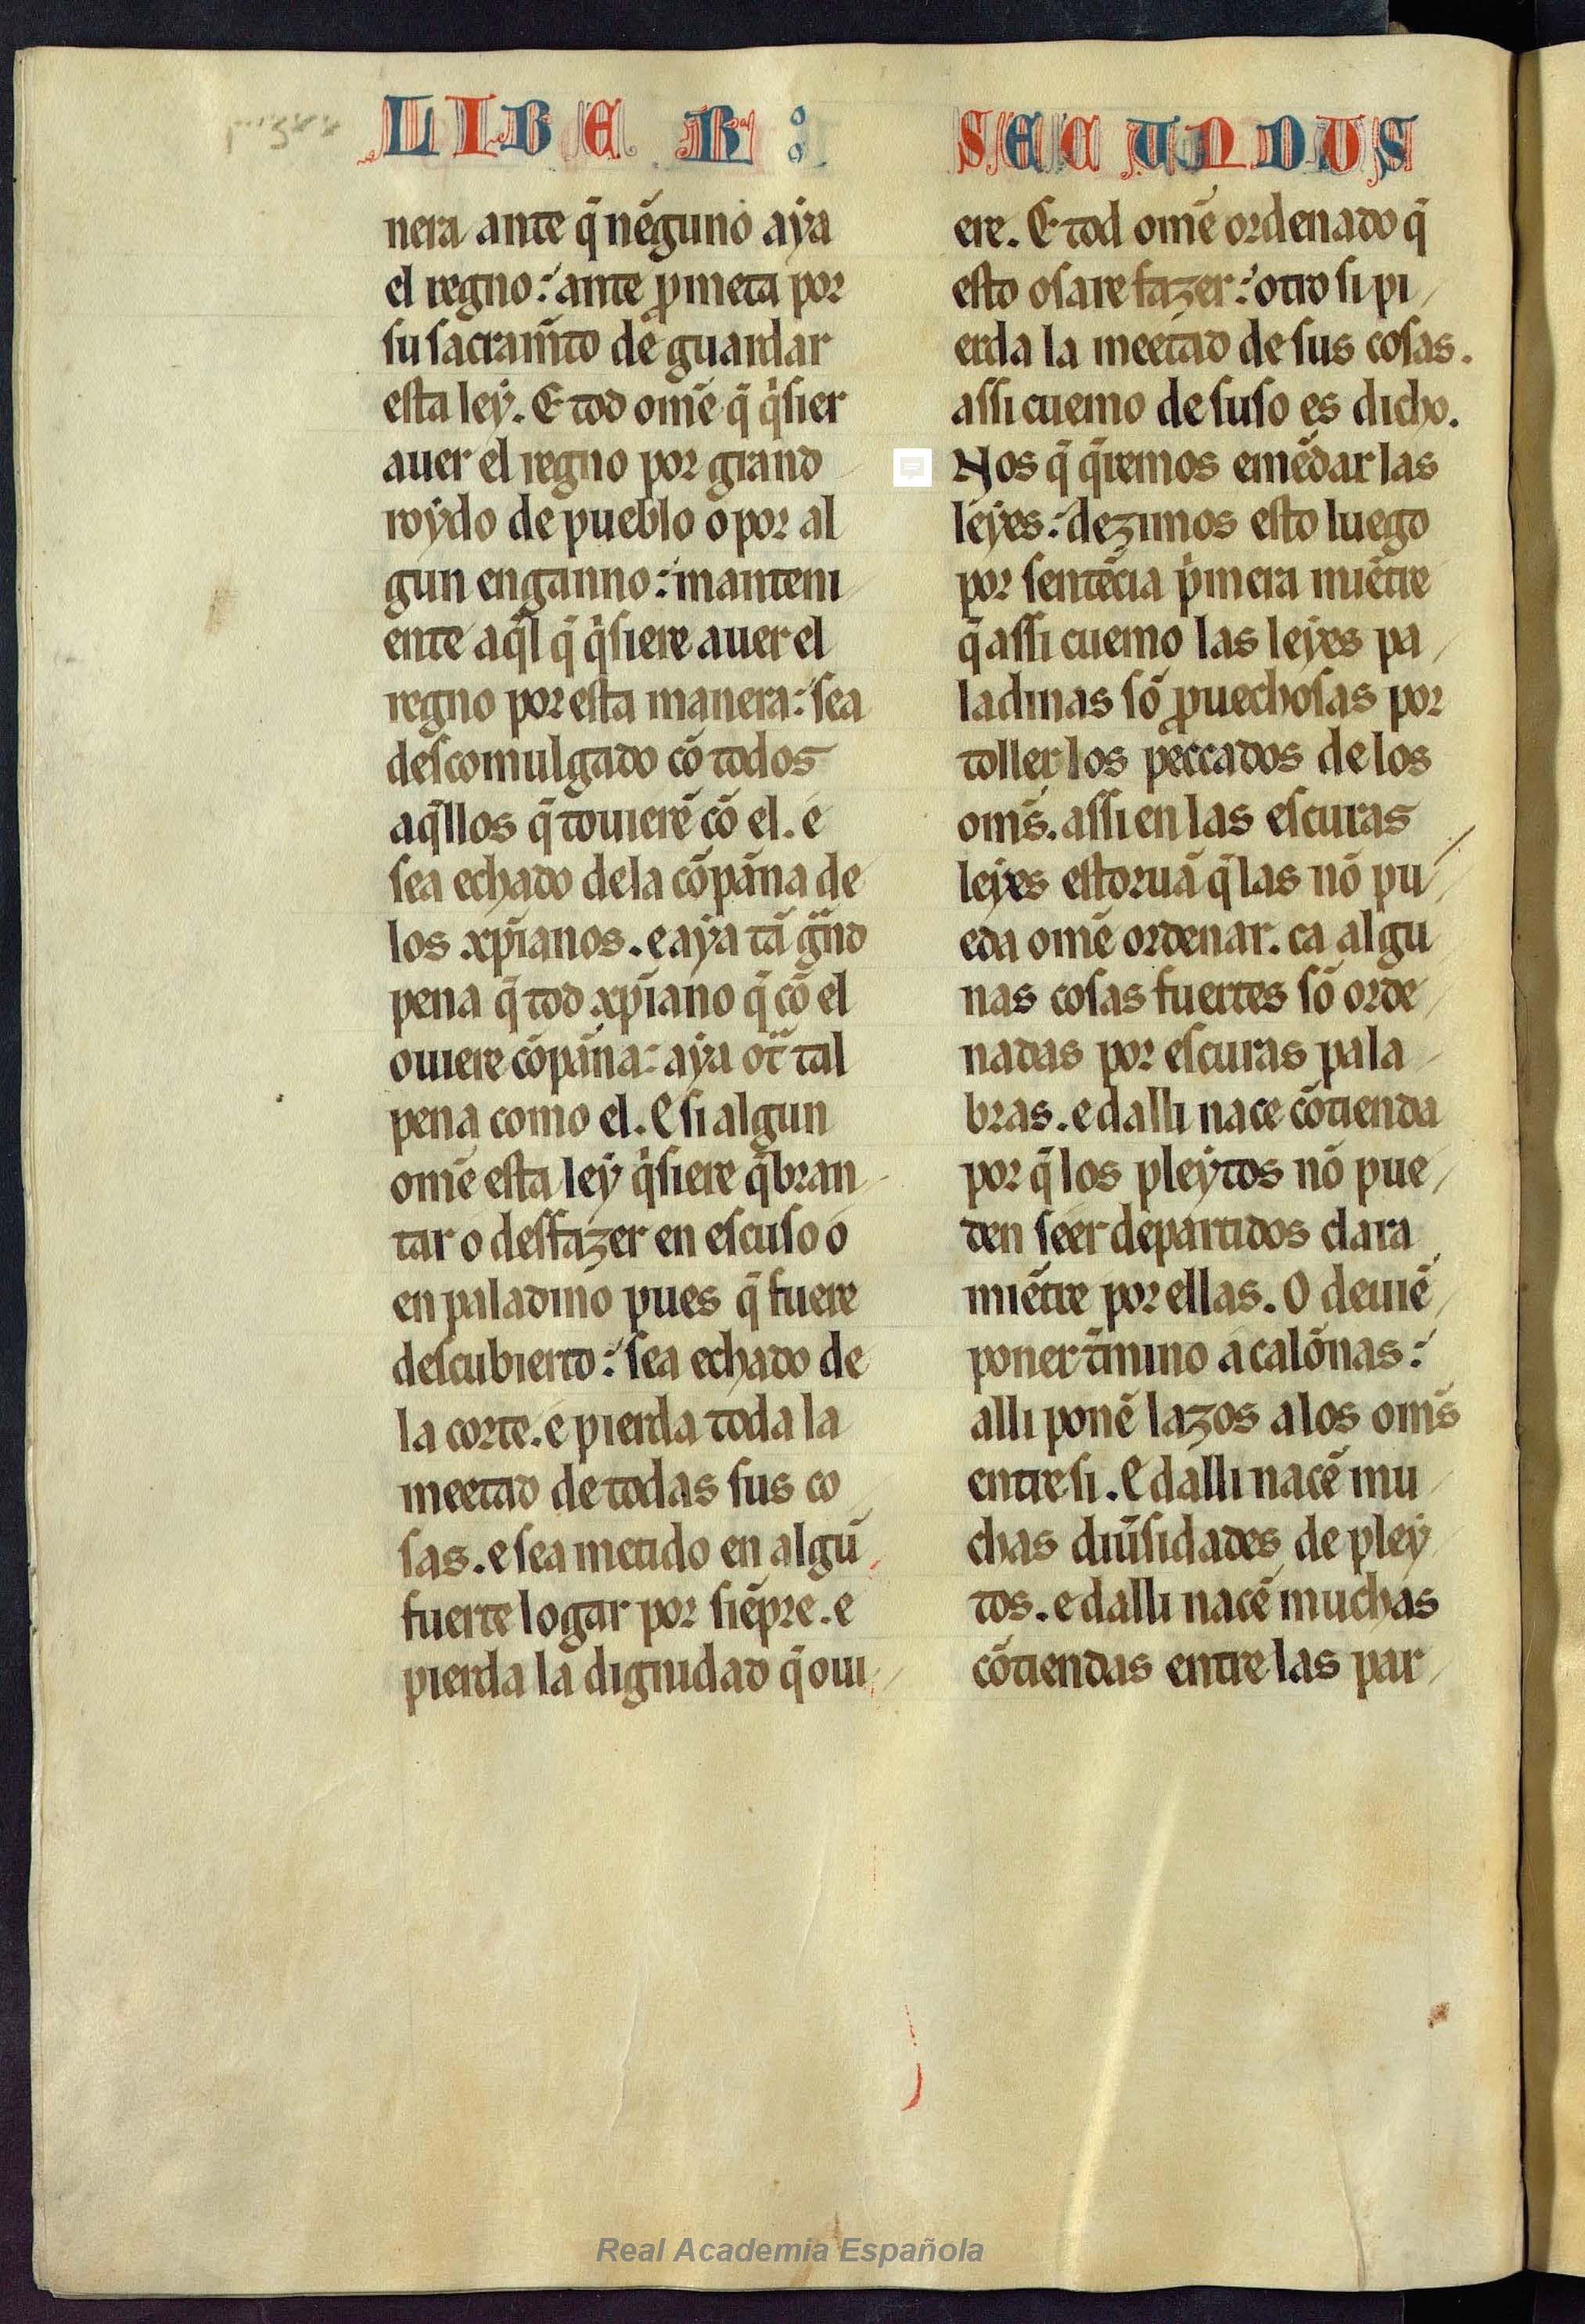 LIBER : SECUNDUS
nera ante q̃ nẽguno aẏa
el regno: ante ꝓmeta por
su sacram̃to de guardar
esta leẏ. E tod omẽ q̃ q̇sier
auer el regno por grand
roẏdo de pueblo o por al
gun enganno: manteni
ente aq̃l q̃ q̇siere auer el
regno por esta manera: sea
descomulgado cõ todos
aq̃llos q̃ touierẽ cõ el. e
sea echado dela cõpãna de
los xp̃ianos. e aẏa tã gñd
pena q̃ tod xp̃iano q̃ cõ el
ouiere cõpãna: aẏa ot̃ tal
pena como el. E si algun
omẽ esta leẏ q̇siere q̃bran
tar o desfazer en escuso o
en paladino pues q̃ fuere
descubierto: sea echado de
la corte. e pierda toda la
meetad de todas sus co
sas. e sea metido en algũ
fuerte logar por siẽpre. e
pierda la dignidad q̃ oui
ere. E tod omẽ ordenado q̃
esto osare fazer: otro si pi
erda la meetad de sus cosas.
assi cuemo de suso es dicho.
Nos q̃ q̃remos emẽdar las
leẏes: dezimos esto luego
por sentẽcia ṗmera miẽtre
q̃ assi cuemo las leẏes pa
ladinas sõ ꝓuechosas por
toller los peccados de los
oms̃. assi en las escuras
leẏes estoruã q̃ las nõ pu
eda omẽ ordenar. ca algu
nas cosas fuertes sõ orde
nadas por escuras pala
bras. e dalli nace cõtienda
por q̃ los pleẏtos nõ pue
den seer departidos clara
miẽtre por ellas. O deuiẽ
poner t̃mino a calõnas:
alli ponẽ lazos a los oms̃
entre si. E dalli nacẽ mu
chas diũsidades de pleẏ
tos. e dalli nacẽ muchas
cõtiendas entre las par
Real Academia Española